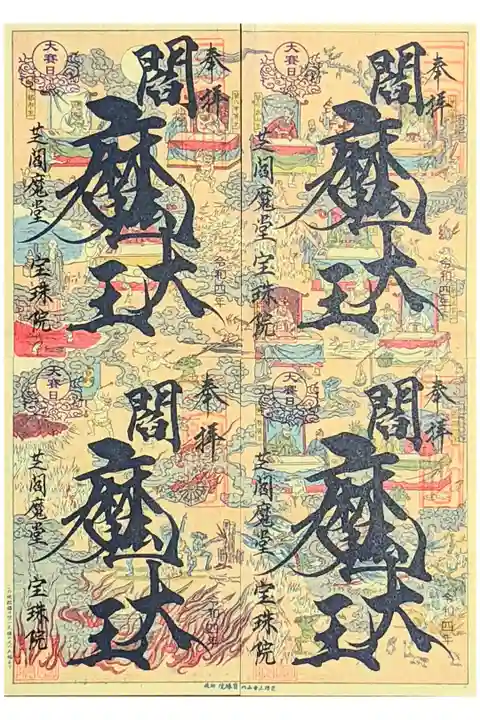 奉拝
閻魔大王
令和四年
大賽日
芝閻魔堂 宝珠院
奉拝
閻魔大王
令和四年
大賽日
芝閻魔堂 宝珠院
奉拝
閻魔大王
令和四年
大賽日
芝閻魔堂 宝珠院
奉拝
閻魔大王
和四年
大賽日
芝閻魔堂 宝珠院